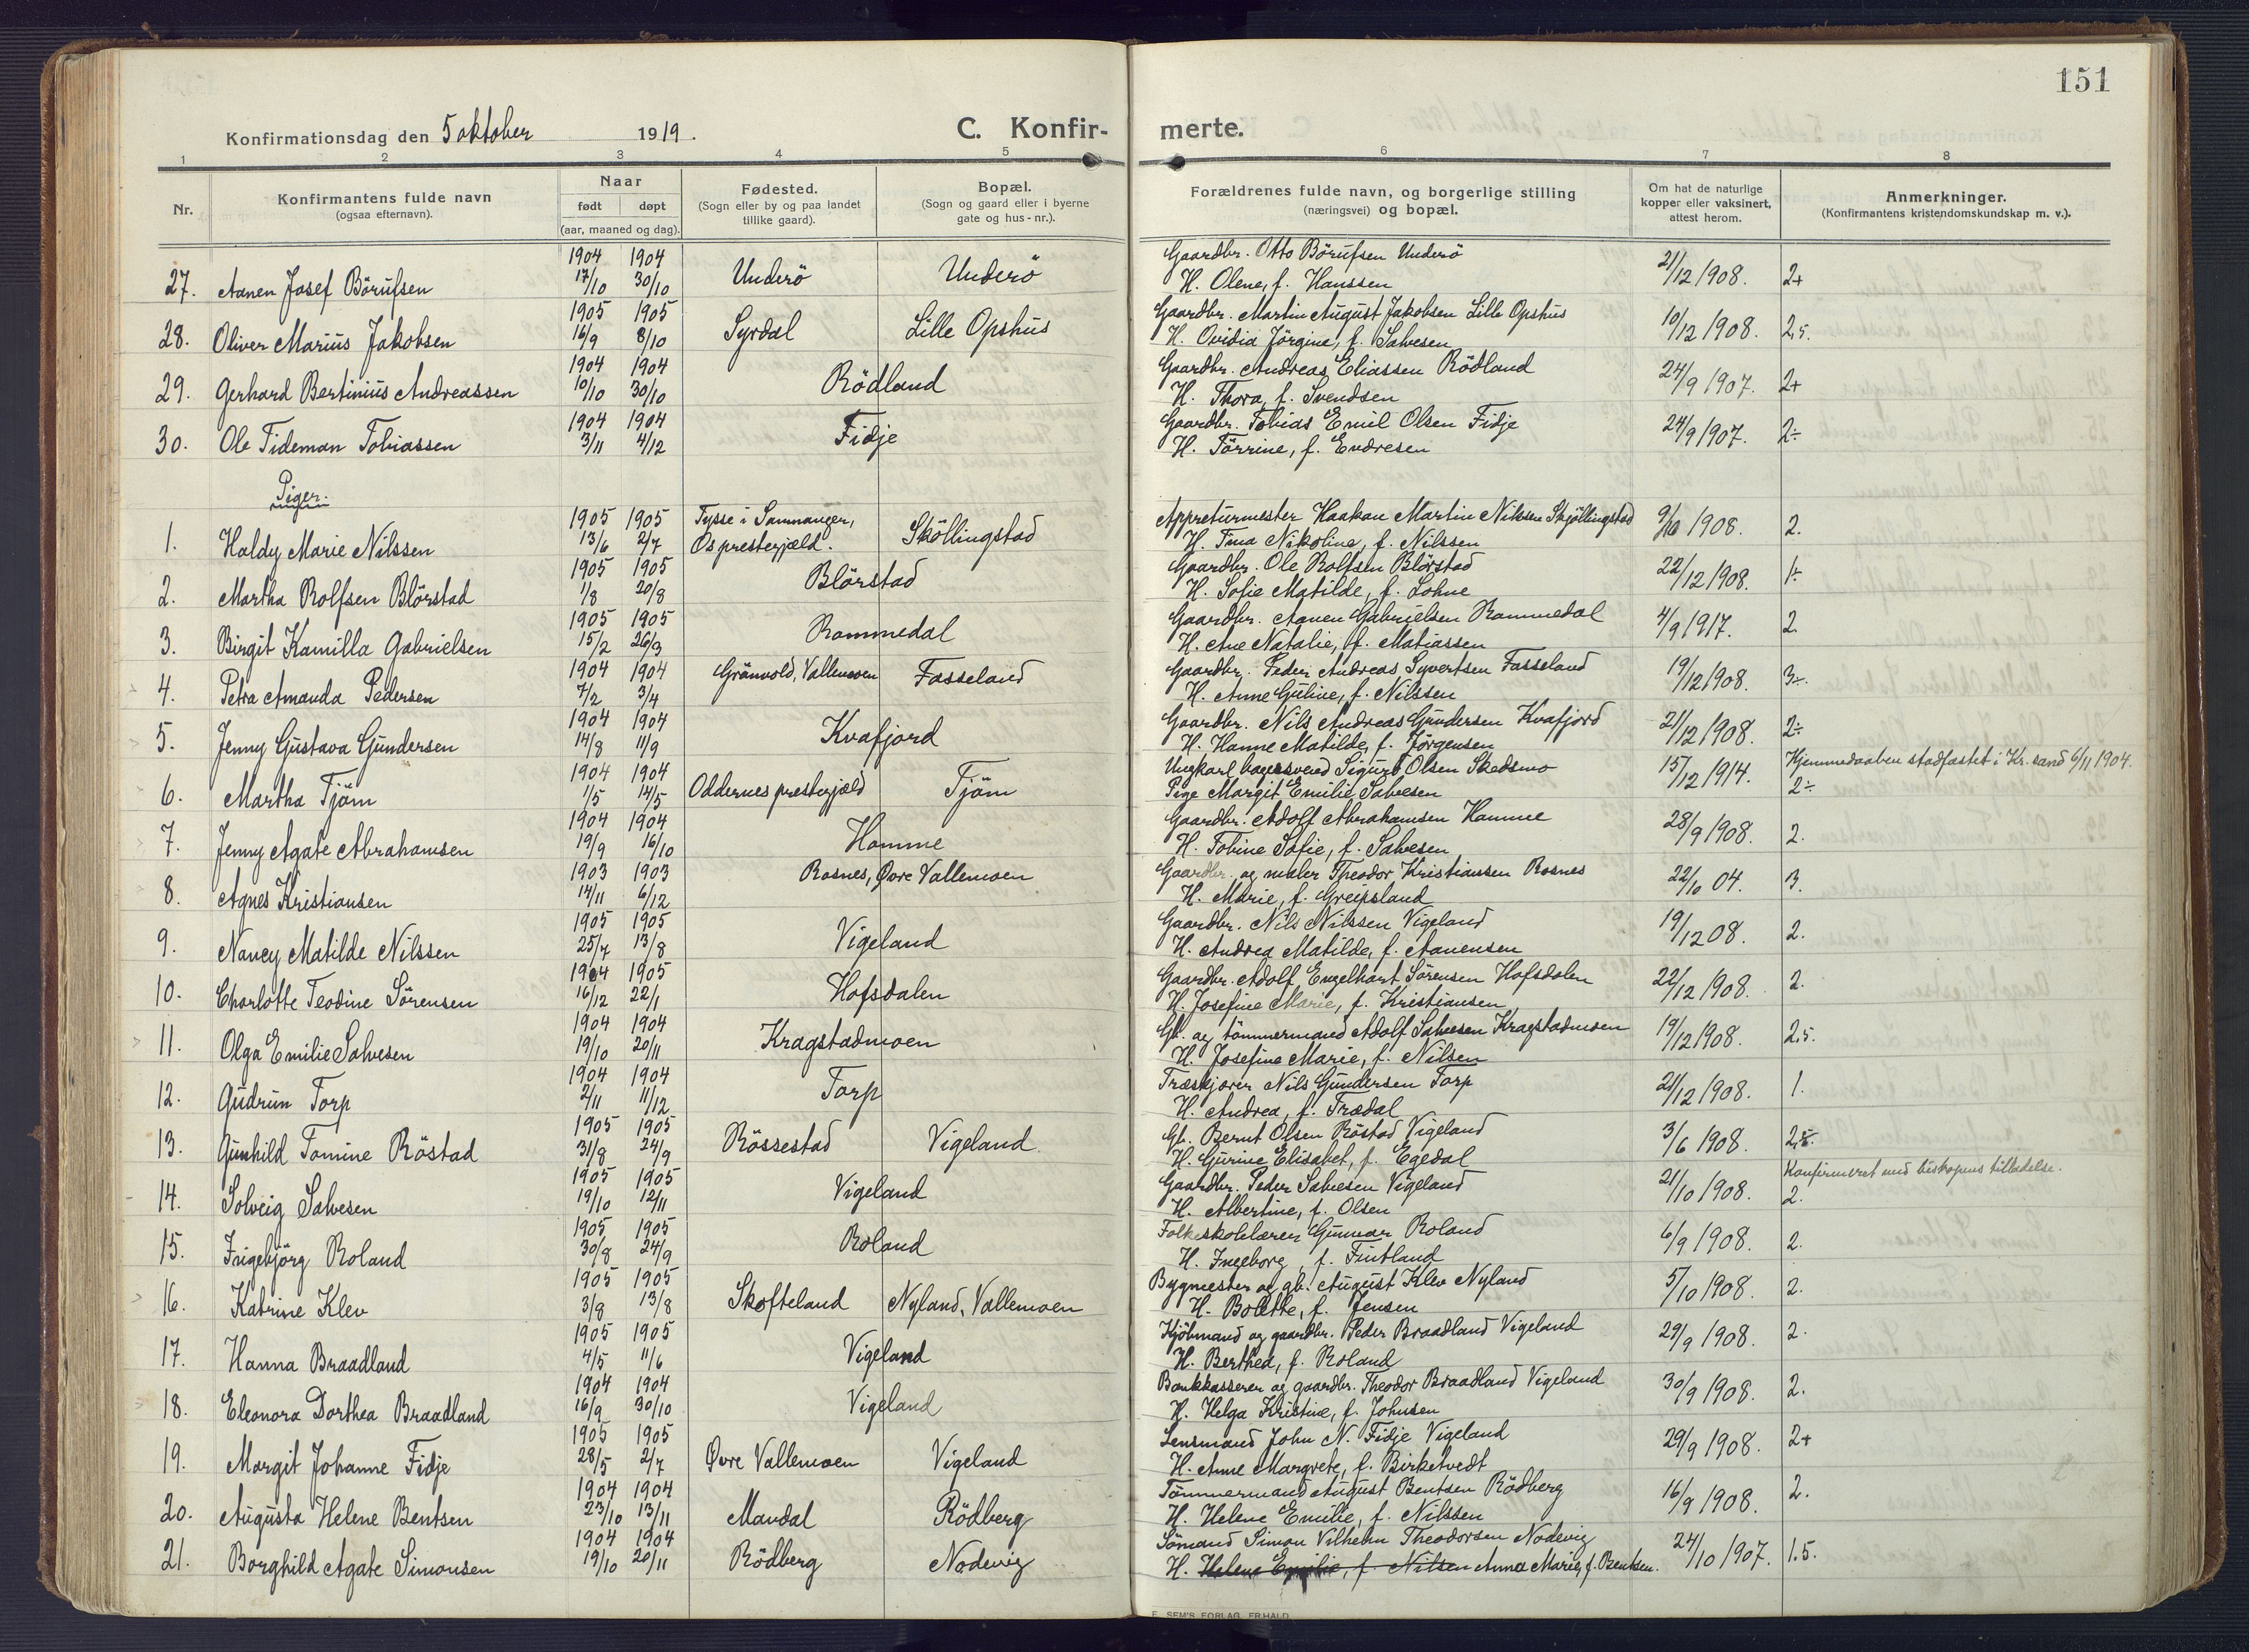 151
Konfirmationsdag den 5 oktober 1919. C. Konfirmerte.
1 2 3 4 5 6 7 8
Nr. Konfirmantens fulde navn (ogsaa efternavn). Naar født døpt (aar, maaned og dag). Fødested. (Sogn eller by og paa landet tillike gaard). Bopæl. (Sogn og gaard eller i byerne gate og hus-nr.). Forældrenes fulde navn, og borgerlige stilling (næringsvei) og bopæl. Om hat de naturlige kopper eller vaksinert, attest herom. Anmerkninger. (Konfirmantens kristendomskundskap m. v.).
1904 1904 Gaardbr. Otto Börufsen Underö
27. Aanen Josef Börufsen 17/10 30/10 Underö Underö H. Olene, f. Hanssen 21/12 1908. 2+
1905 1905 Gaardbr. Martin August Jakobsen Lille Opshus
28. Oliver Marius Jakobsen 16/9 8/10 Syrdal Lille Opshus H. Ovidia Jörgine, f. Salvesen 10/12 1908. 2,5.
1904 1904 Gaardbr. Andreas Eliassen Rödland
29. Gerhard Bertinius Andreassen 10/10 30/10 Rödland H. Thora, f. Svendsen 24/9 1907. 2+
1904 1904 Gaardbr. Tobias Emil Olsen Fidje
30. Ole Tideman Tobiassen 3/11 4/12 Fidje H. Törrine, f. Endresen 24/9 1907. 2÷
Piger.
1905 1905 Tysse i Sammanger, Appreturmester Haakan Martin Nilssen Skjöllingstad
1. Haldy Marie Nilssen 13/6 2/7 Os presterjæld. Sköllingstad H. Tina Nikoline, f. Nilssen 9/10 1908. 2.
1905 1905 Gaardbr. Ole Rolfsen Blörstad
2. Martha Rolfsen Blörstad 1/8 20/8 Blörstad H. Sofie Matilde, f. Lohne 22/12 1908. 1÷
1905 1905 Gaardbr. Aanen Gabrielsen Rommedal
3. Birgit Kamilla Gabrielsen 15/2 26/3 Rommedal H. Ane Natalie, f. Matiassen 4/9 1917. 2.
1904 1904 Gaardbr. Peder Andreas Syvertsen Fasseland
4. Petra Amanda Pedersen 7/2 3/4 Grönvold, Vallemoen Fasseland H. Anne Guline, f. Nilssen 19/12 1908. 3÷.
1904 1904 Gaardbr. Nils Andreas Gundersen Kvafjord
5. Jenny Gustava Gundersen 14/8 11/9 Kvafjord H. Hanne Matilde, f. Jörgensen 21/12 1908. 2÷
1904 1904 Ungkarl bagersvend Sigurd Olsen Skedsmo Hjemmedaaben stadfæstet i Kr.sand 6/11 1904.
6. Martha Tjöm 1/5 14/5 Oddernes presterjæld Tjöm Pige Margit Emilie Salvesen 15/12 1914. 2÷
1904 1904 Gaardbr. Adolf Abrahamsen Homme
7. Jenny Agate Abrahamsen 19/9 16/10 Homme H. Tobine Sofie, f. Salvesen 28/9 1908. 2.
1903 1903 Gaardbr. og maler Theodor Kristiansen Rosnes
8. Agnes Kristiansen 14/11 6/12 Rosnes, Øvre Vallemoen H. Marie, f. Greipsland 22/10 04. 3.
1905 1905 Gaardbr. Nils Nilssen Vigeland
9. Nancy Matilde Nilssen 25/7 13/8 Vigeland H. Andrea Matilde, f. Aanensen 19/12 08. 2.
1904 1905 Gaardbr. Adolf Engelhart Sörensen Hofsdalen
10. Charlotte Teodine Sörensen 16/12 22/1 Hofsdalen H. Josefine Marie, f. Kristiansen 22/12 1908. 2.
1904 1904 Gb. og tömmermand Adolf Salvesen Kragstadmoen
11. Olga Emilie Salvesen 19/10 20/11 Kragstadmoen H. Josefine Marie, f. Nilsen 19/12 1908. 2,5.
1904 1904 Træskjærer Nils Gundersen Torp
12. Gudrun Torp 2/11 11/12 Torp H. Andrea, f. Trædal 21/12 1908. 1.
1905 1905 Gb. Bernt Olsen Röstad Vigeland
13. Gunhild Tomine Röstad 31/8 24/9 Rössestad Vigeland H. Gurine Elisabet, f. Egedal 3/6 1908. 2,5.
1905 1905 Gaardbr. Peder Salvesen Vigeland Konfirmeret med biskopens tilladelse.
14. Solveig Salvesen 19/10 12/11 Vigeland H. Albertine, f. Olsen 21/10 1908. 2.
1905 1905 Folkeskolelærer Gunnar Roland
15. Ingebjörg Roland 30/8 24/9 Roland H. Ingeborg, f. Fintland 6/9 1908. 2.
1905 1905 Bygmester og gb. August Klev Nyland
16. Katrine Klev 3/8 13/8 Skofteland Nyland, Vallemoen H. Bolette, f. Jensen 5/10 1908. 2.
1905 1905 Kjöbmand og gaardbr. Peder Braadland Vigeland
17. Hanna Braadland 4/5 11/6 Vigeland H. Berthea, f. Roland 29/9 1908. 2.
1904 1904 Bankkasserer og gaardbr. Theodor Braadland Vigeland
18. Eleonora Dorthea Braadland 16/9 30/10 Vigeland H. Helga Kristine, f. Johnsen 30/9 1908. 2.
1905 1905 Lensmand John N. Fidje Vigeland
19. Margit Johanne Fidje 28/5 2/7 Øvre Vallemoen Vigeland H. Anne Margrete, f. Birketvedt 29/9 1908. 2+
1904 1904 Tömmermand August Bentsen Rödberg
20. Augusta Helene Bentsen 23/10 13/11 Mandal Rödberg H. Helene Emilie, f. Nilssen 16/9 1908. 2.
1904 1904 Sömand Simon Vilhelm Theodorsen Nodevig
21. Borghild Agate Simonsen 19/10 20/11 Rödberg Nodevig H. Helene Emilie, f. Nilsen Anna Marie, f. Bentsen. 24/10 1907. 1.5.
E. SEM'S FORLAG, FR.HALD